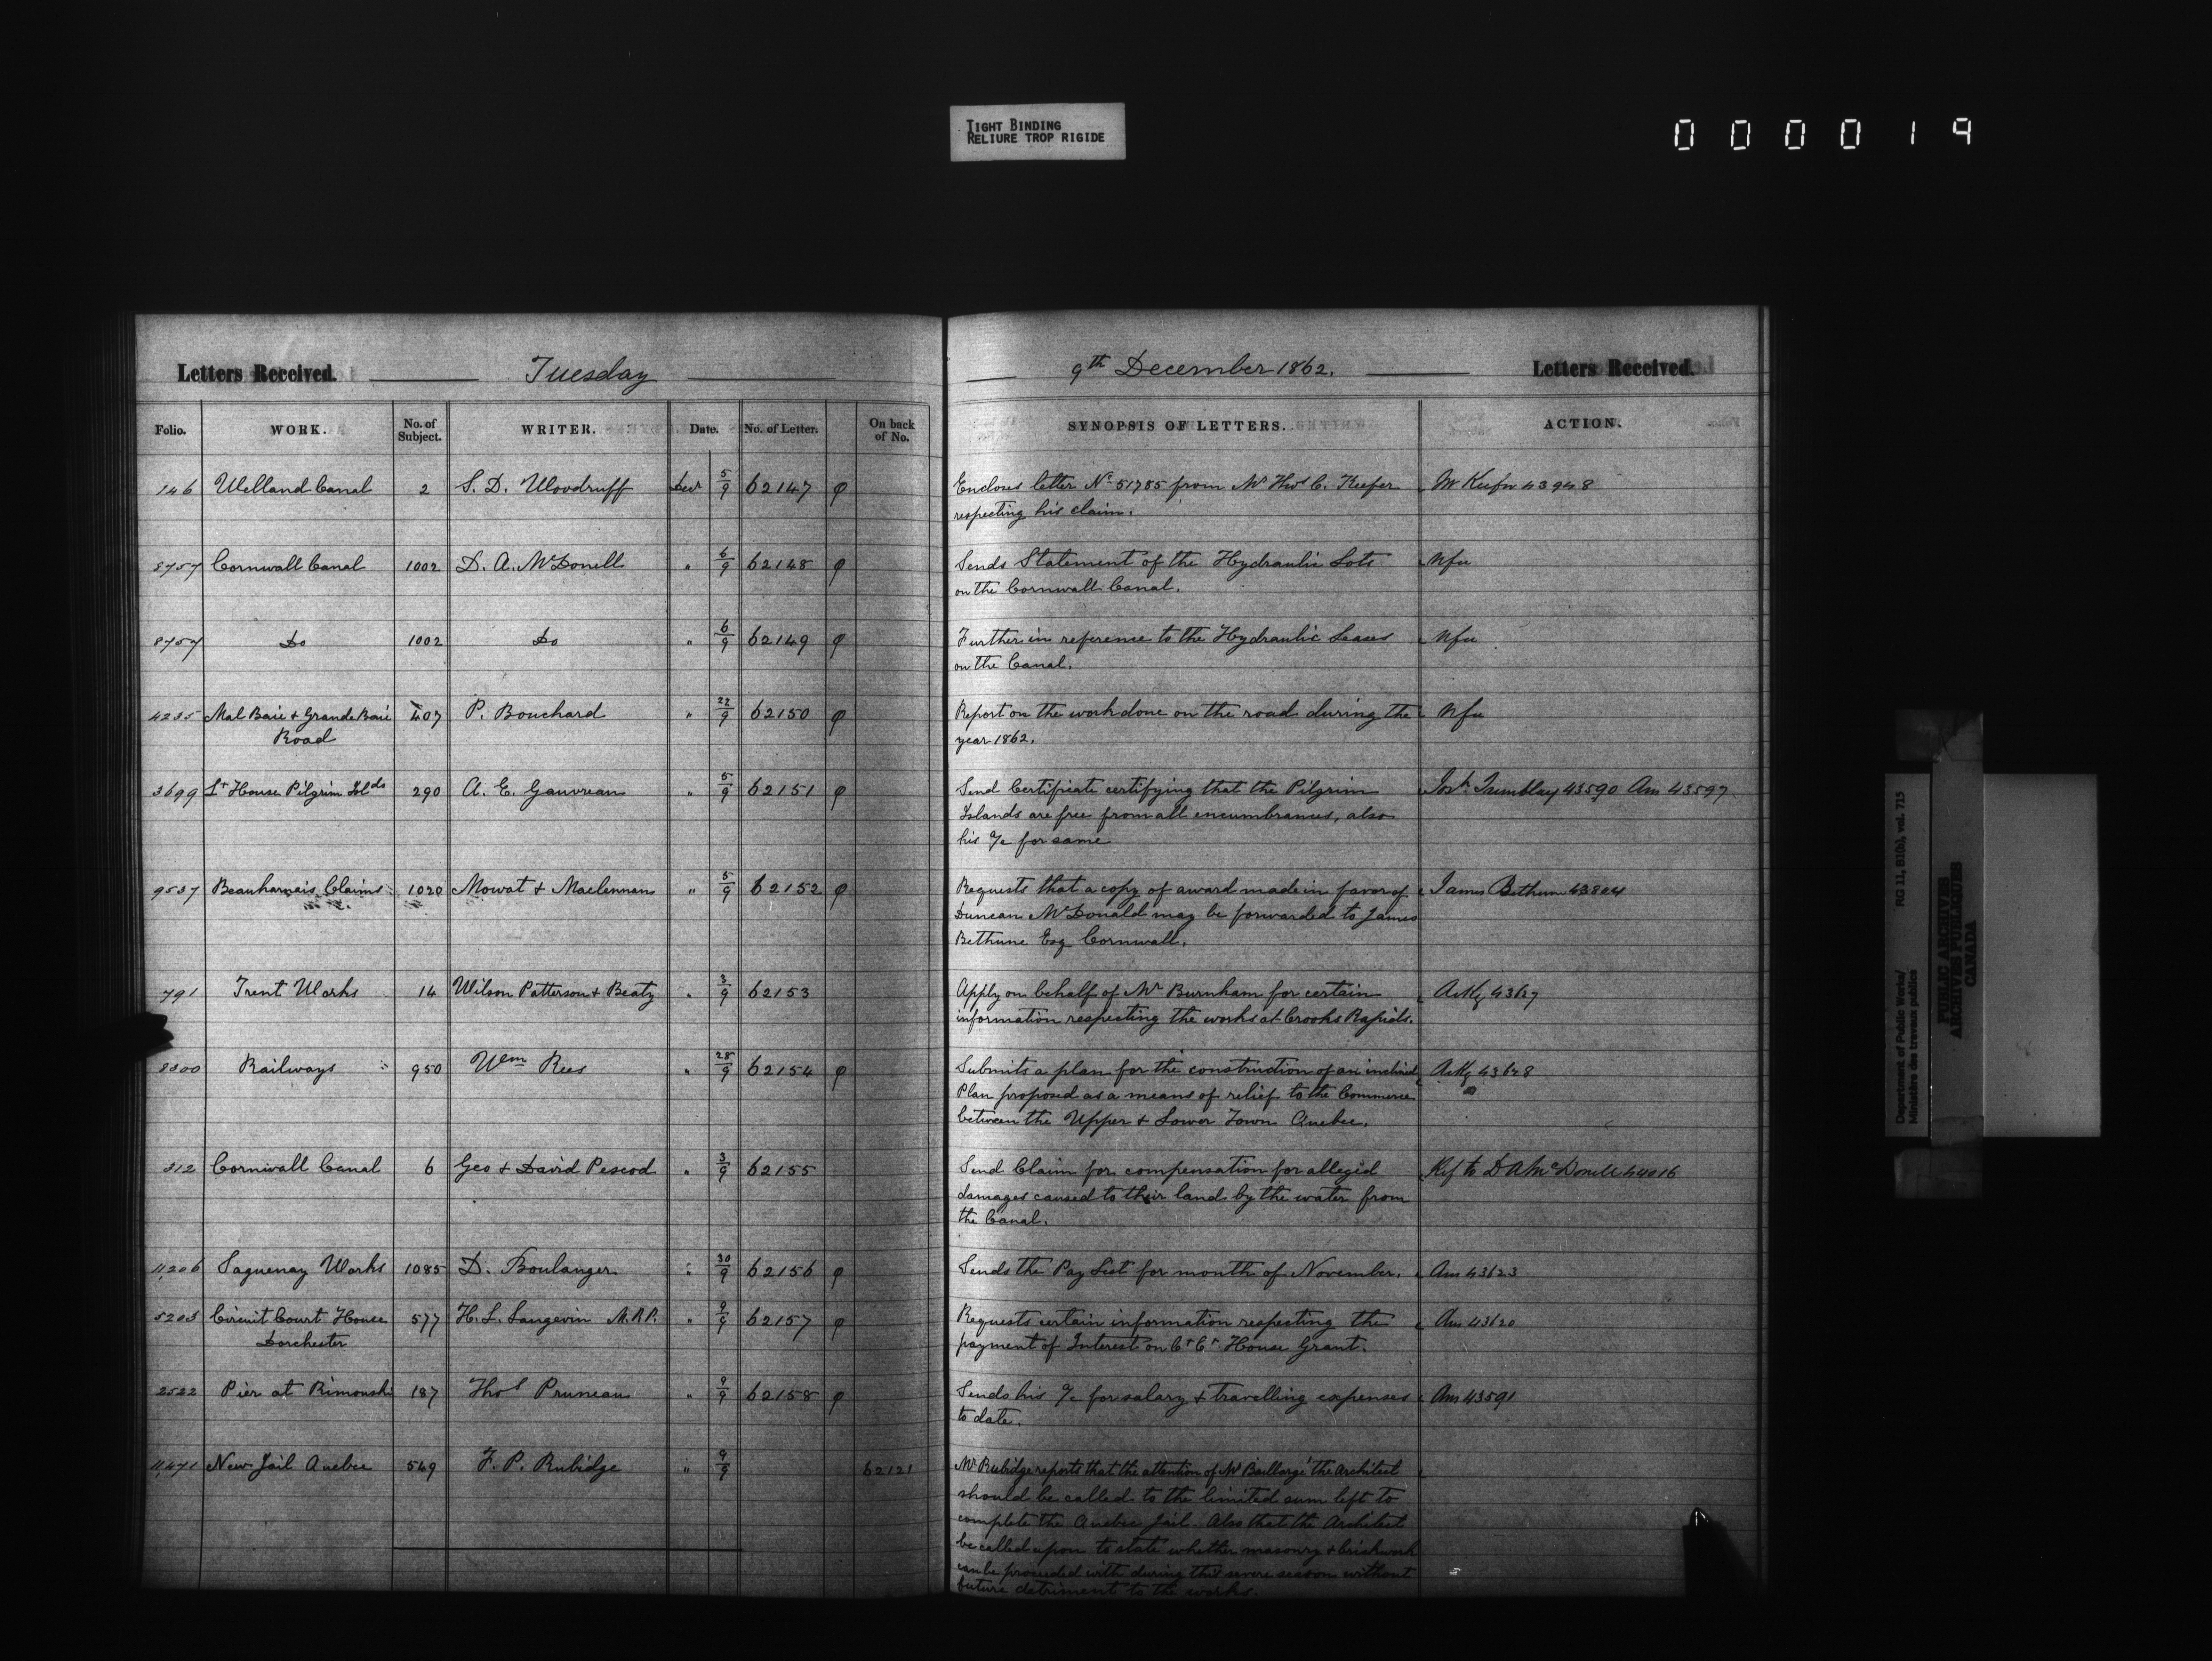 TIGHT BINDING
RELIURE TROP RIGIDE
000019
Letters Received. Tuesday
Folio. WORK. No. of Subject. WRITER. Date. No. of Letter. On back of No.
146 Welland Canal 2 S. D. Woodruff Decr 5/9 62147 φ
8757 Cornwall Canal 1002 D. A. McDonell " 6/9 62148 φ
8757 Do 1002 Do " 6/9 62149 φ
4235 Mal Baie & Grande Baie 407 P. Bouchard " 22/9 62150 φ
Road
3699 Lt House Pilgrim Islds 290 A. E. Gauvreau " 5/9 62151 φ
9537 Beauharnais Claims 1020 Mowat & Maclennan " 5/9 62152 φ
791 Trent Works 14 Wilson Patterson & Beaty " 3/9 62153
8300 Railways 950 Wm Rees " 28/9 62154 φ
312 Cornwall Canal 6 Geo & David Pescod " 3/9 62155
11,206 Saguenay Works 1085 D. Boulanger " 30/9 62156 φ
5203 Circuit Court House 577 H. L. Langevin M.P.P. " 9/9 62157 φ
Dorchester
2522 Pier at Rimouski 187 Thos Pruneau " 9/9 62158 φ
11,471 New Jail Quebec 549 F. P. Rubidge " 9/9 62121
9th December 1862. Letters Received.
SYNOPSIS OF LETTERS. ACTION.
Encloses letter No 51785 from Mr C. Keefer Mr Keefer 43948
respecting his claim.
Sends Statement of the Hydraulic Lots Nfu
on the Cornwall Canal.
Further in reference to the Hydraulic Leases Nfu
on the Canal.
Report on the work done on the road during the Nfu
year 1862.
Send Certificate certifying that the Pilgrim Josh Tremblay 43590 Ans 43597
Islands are free from all encumbrances, also
his a/c for same
Requests that a copy of award made in favor of James Bethune 43804
Duncan McDonald may be forwarded to James
Bethune Esq Cornwall.
Apply on behalf of Mr Burnham for certain Ackg 43627
information respecting the works at Crooks Rapids.
Submits a plan for the construction of an inclined Ackg 43628
Plan proposed as a means of relief to the Commerce
between the Upper & Lower Town Quebec.
Send Claim for compensation for alleged Ref to D A McDonell 44016
damages caused to their land by the water from
the Canal.
Sends the Pay List for month of November. Ans 43623
Requests certain information respecting the Ans 43620
payment of Interest on Ct Ct House Grant.
Sends his a/c for salary & travelling expenses Ans 43591
to date.
Mr Rubidge reports that the attention of Mr Baillargé the Architect
should be called to the limited sum left to
complete the Quebec Jail. Also that the Architect
be called upon to state whether masonry & brickwork
can be proceeded with during this severe season without
future detriment to the works.
Department of Public Works/ RG 11, B1(b), vol. 715
Ministère des travaux publics
PUBLIC ARCHIVES
ARCHIVES PUBLIQUES
CANADA